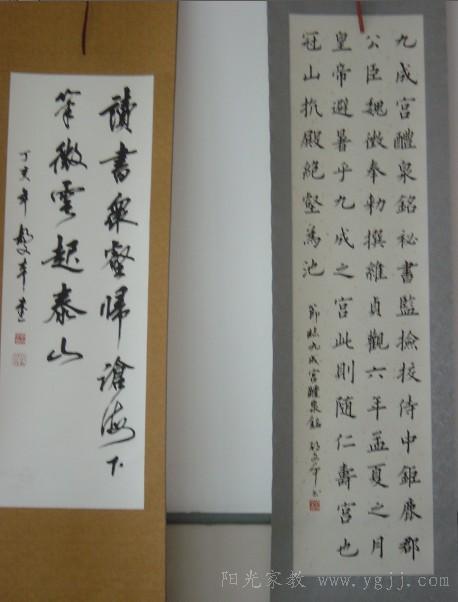 九成宮醴泉銘祕書監撿挍侍中鉅鹿郡
公臣魏徵奉勅撰維貞觀六年孟夏之月
皇帝避暑乎九成之宮此則随仁壽宮也
冠山抗殿絕壑為池
節臨九成宮醴泉銘
讀書衆壑歸滄海下
筆微雲起泰山
丁亥年
阳光家教 www.ygjj.com